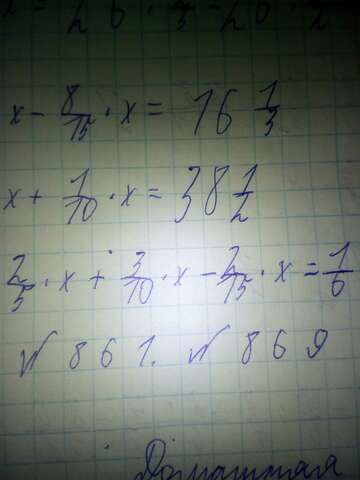 x - 8/15 · x = 16 1/3
x + 1/10 · x = 38 1/2
2/5 · x + 3/10 · x - 2/15 · x = 1/6
№ 861. № 869
Домашняя